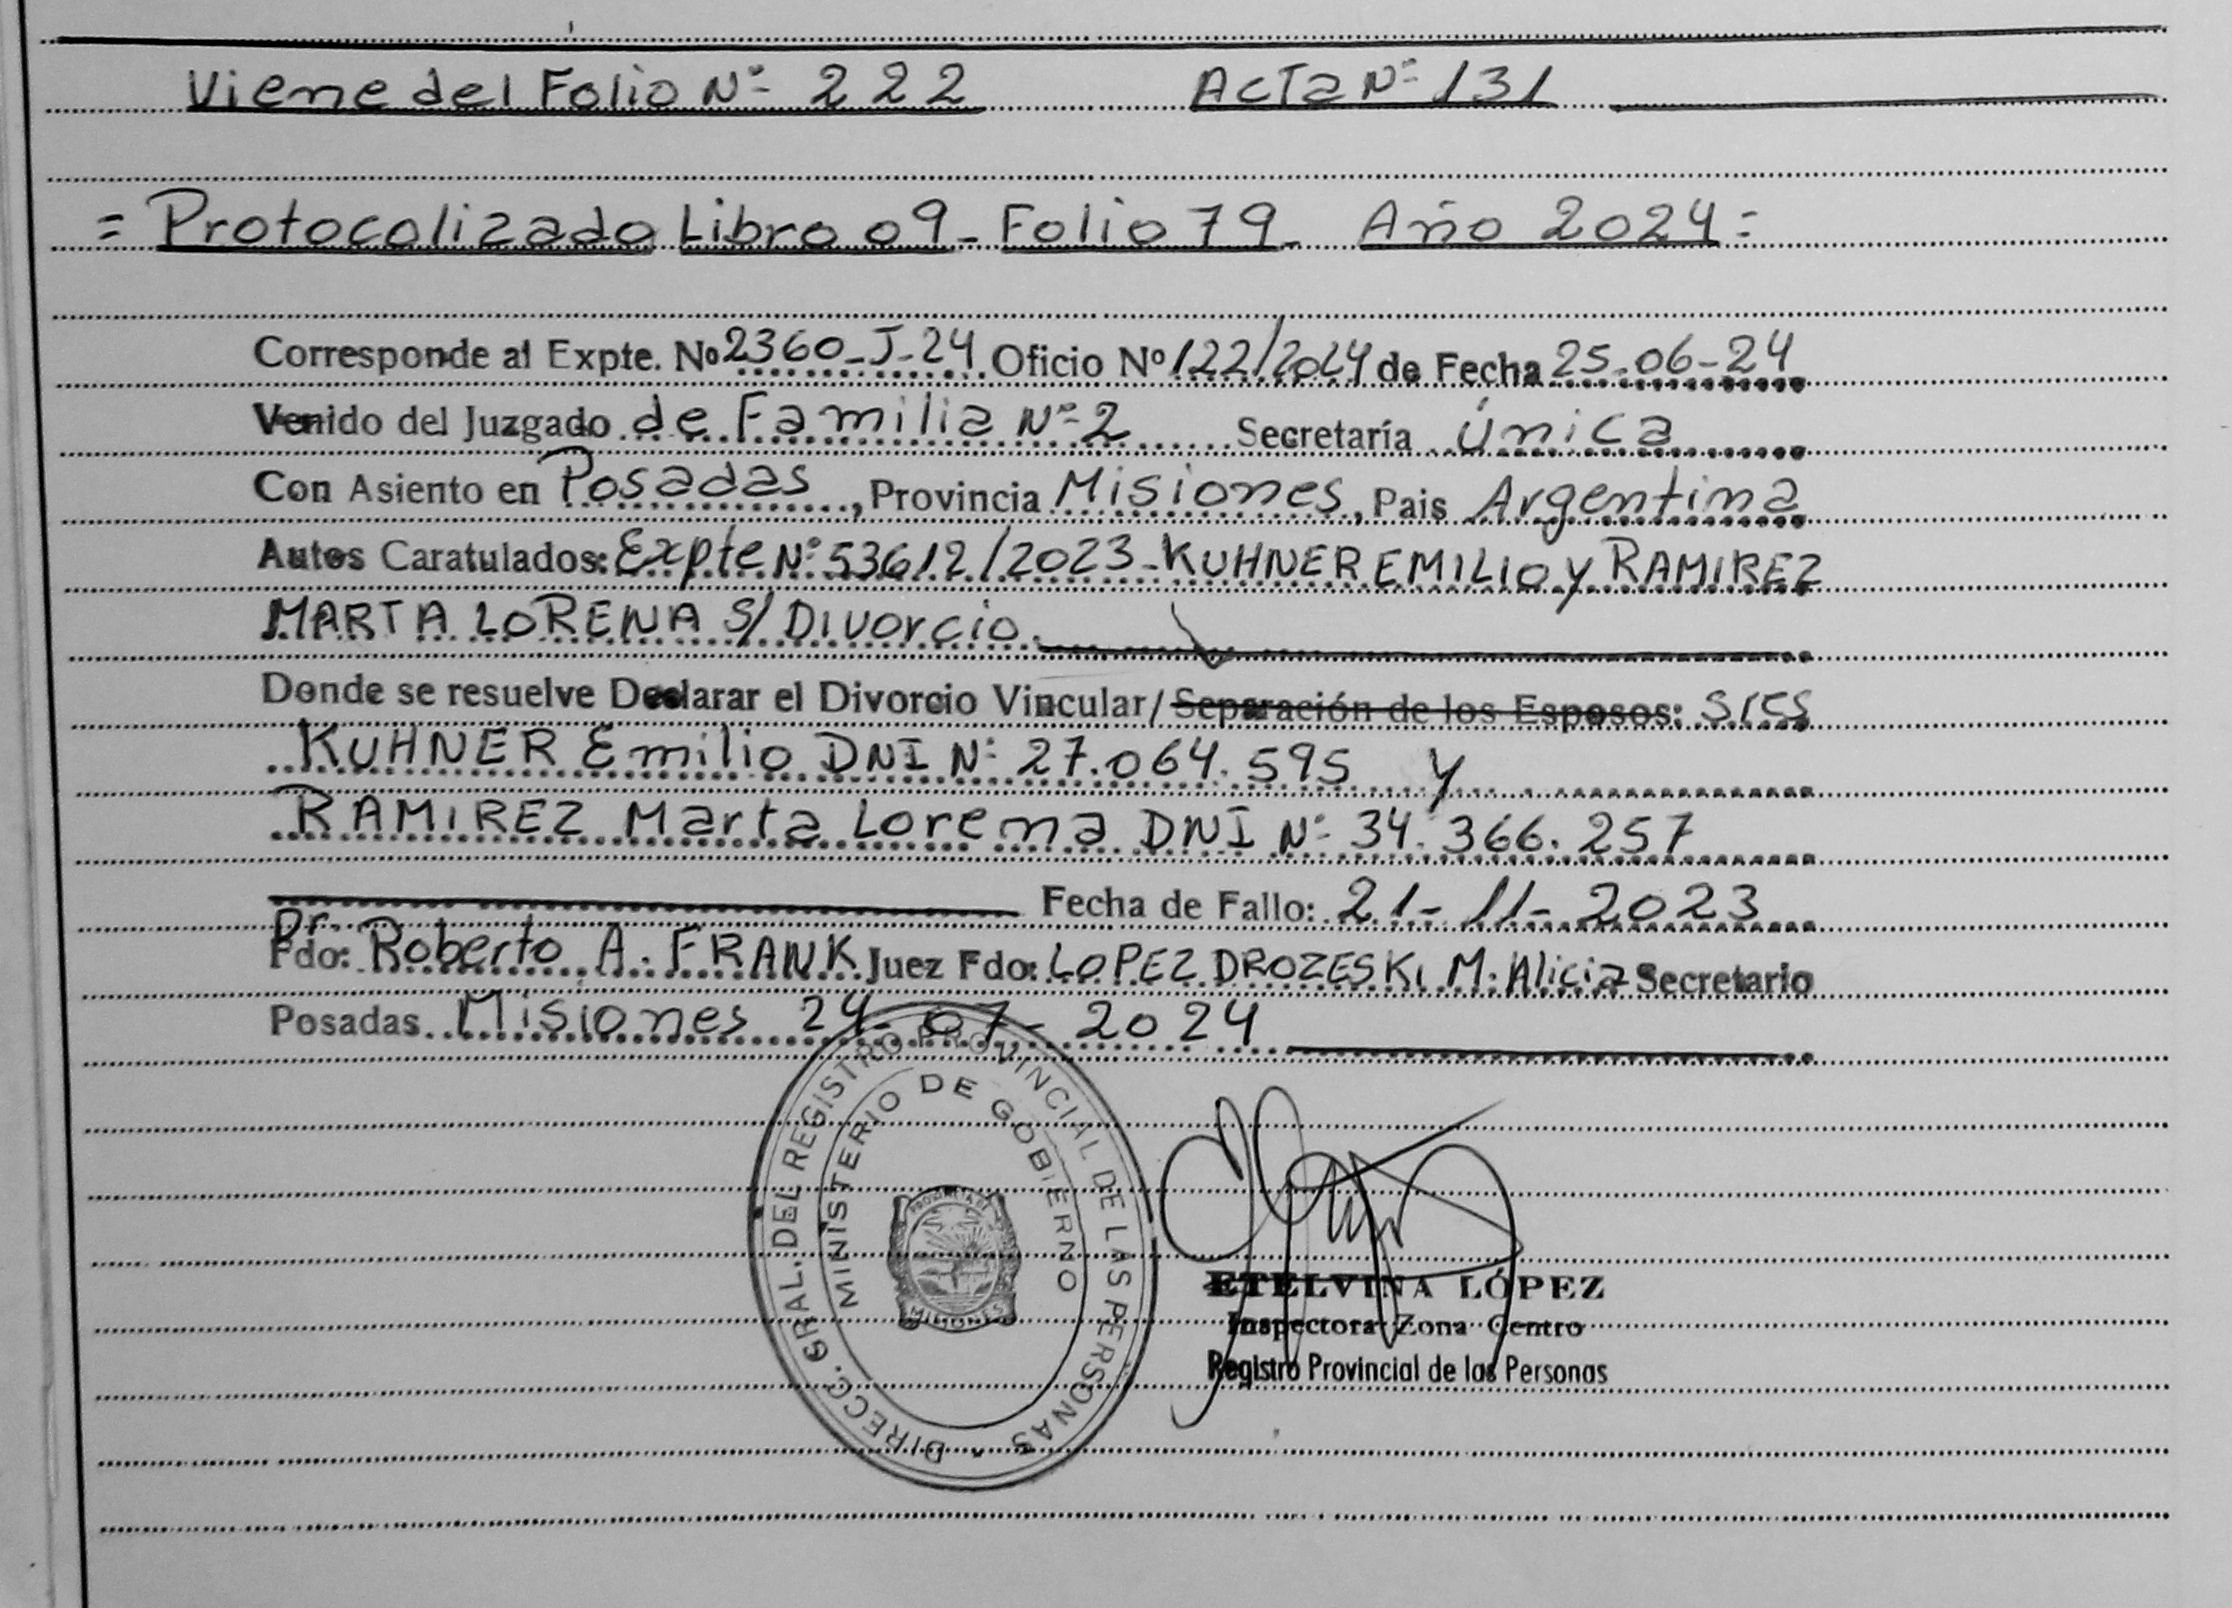 Viene del Folio Nº 222 Acta Nº 131
= Protocolizado Libro 09 - Folio 79 - Año 2024 =
Corresponde al Expte. Nº 2360-J-24 Oficio Nº 122/2024 de Fecha 25-06-24
Venido del Juzgado de Familia Nº 2 Secretaría Única
Con Asiento en Posadas, Provincia Misiones, Pais Argentina
Autos Caratulados: Expte Nº 53612/2023 - KUHNER EMILIO Y RAMIREZ
MARTA LORENA S/ Divorcio.
Donde se resuelve Declarar el Divorcio Vincular/ Separación de los Esposos: sres
KUHNER Emilio DNI Nº 27.064.595 y
RAMIREZ Marta Lorena DNI Nº 34.366.257
Fecha de Fallo: 21-11-2023
Dr.
Fdo: Roberto A. FRANK Juez Fdo: LOPEZ DROZESKI M. Alicia Secretario
Posadas Misiones 24-07-2024
DIRECC. GRAL. DEL REGISTRO PROVINCIAL DE LAS PERSONAS
MINISTERIO DE GOBIERNO
MISIONES
ETELVINA LÓPEZ
Inspectora Zona Centro
Registro Provincial de las Personas